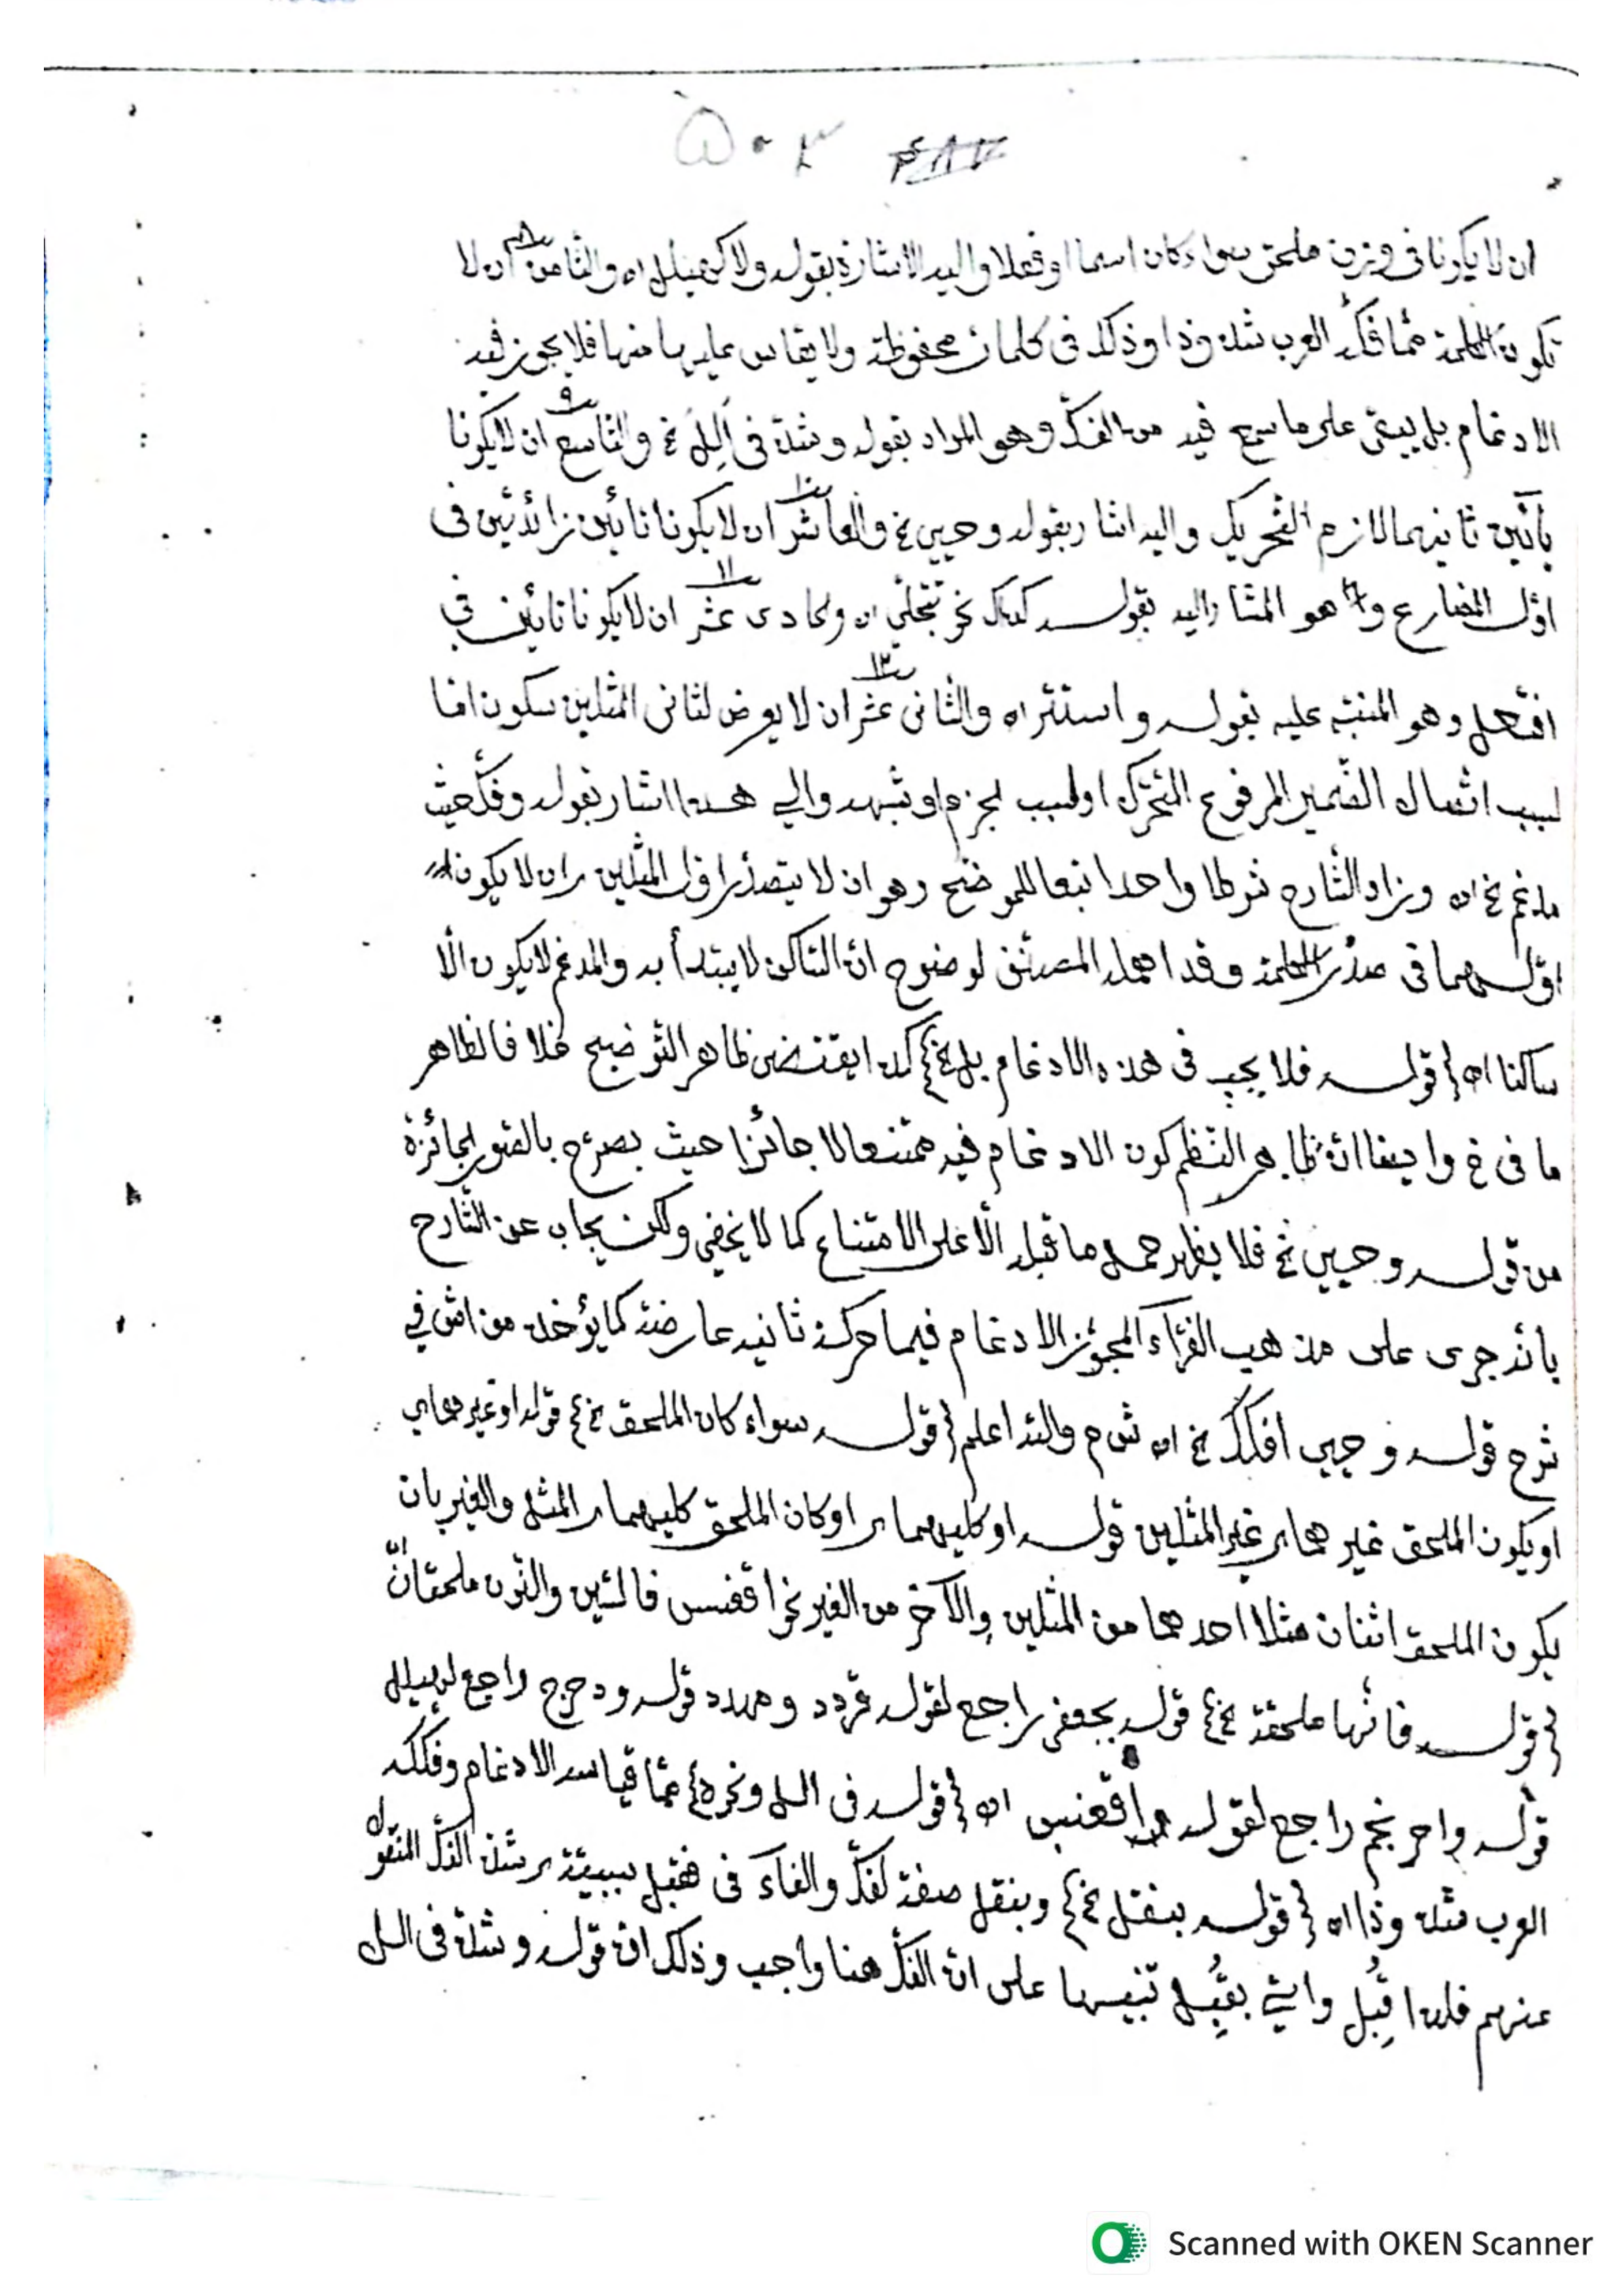 ٥٠٣ ٤٨٧
ان لا يكونا فى وزن ملحق سواء كان اسما او فعلا واليه الاشارة بقوله ولا كهيلل اه والثامن ٨ ان لا
تكون الكلمة مما فكه العرب شذوذا وذلك فى كلمات محفوظة ولا يقاس عليها منها فلا يجوز فيه
الادغام بل يبقى على ما سمع فيه من الفك وهو المراد بقوله وشذ فى الل الخ والتاسع ٩ ان لا يكونا
يائين ثانيهما لازم التحريك واليه اشار بقوله وحيي الخ والعاشر ١٠ ان لا يكونا تائين زائدتين فى
اول المضارع وهو المشار اليه بقوله كذاك نحو تتجلى اه والحادى عشر ١١ ان لا يكونا تائين فى
افتعل وهو المنبه عليه بقوله واستتر اه والثانى عشر ١٢ ان لا يعرض لثانى المثلين سكون اما
لسبب اتصال الضمير المرفوع المتحرك او لسبب الجزم او شبهه والى هذا اشار بقوله وفك حيث
مدغم الخ اه وزاد الشارح شرطا واحدا تبعا للموضح وهو ان لا يتصدر اول المثلين اى ان لا يكون
اولهما فى صدر الكلمة وقد اهمله المصنف لوضوح ان الساكن لا يبتدأ به والمدغم لا يكون الا
ساكنا اه قوله فلا يجب فى هذه الادغام بل الخ كذا يقتضى ظاهر التوضيح خلافا لظاهر
ما فى خ وايضا ان ظاهر النظم كون الادغام فيه ممتنعا لا جائزا حيث يصرح بالصور الجائزة
من قوله وحيي الخ فلا يظهر حمل ما قبله الا على الامتناع كما لا يخفى ولكن يجاب عن الشارح
بانه جرى على مذهب الفراء المجوز الادغام فيما حركة ثانيه عارضة كما يؤخذ من اش فى
شرح قوله وحيي افكك الخ اه ش م والله اعلم قوله سواء كان الملحق الخ قوله او غيرهما اى
او يكون الملحق غيرهما اى غير المثلين قوله او كليهما اى او كان الملحق كليهما اى المثل والغير بان
يكون الملحق اثنان مثلا احدهما من المثلين والآخر من الغير نحو اقعنسس فالسين والنون ملحقان
قوله فانها ملحقة الخ قوله بجعفر راجع لقوله قردد ومهدد قوله ودحرج راجع لهيلل
قوله واحرنجم راجع لقوله اقعنسس اه قوله فى الل ونحوه مما قياسه الادغام وفككه
العرب شذوذا اه قوله بنقل الخ وبنقل صفة لفك والفاء فى فقبل سببية اى شذ الفك المنقول
عنهم فلذا قبل واتى بقبل تنبيها على ان الفك هنا واجب وذلك ان قوله وشذ فى الل
Scanned with OKEN Scanner